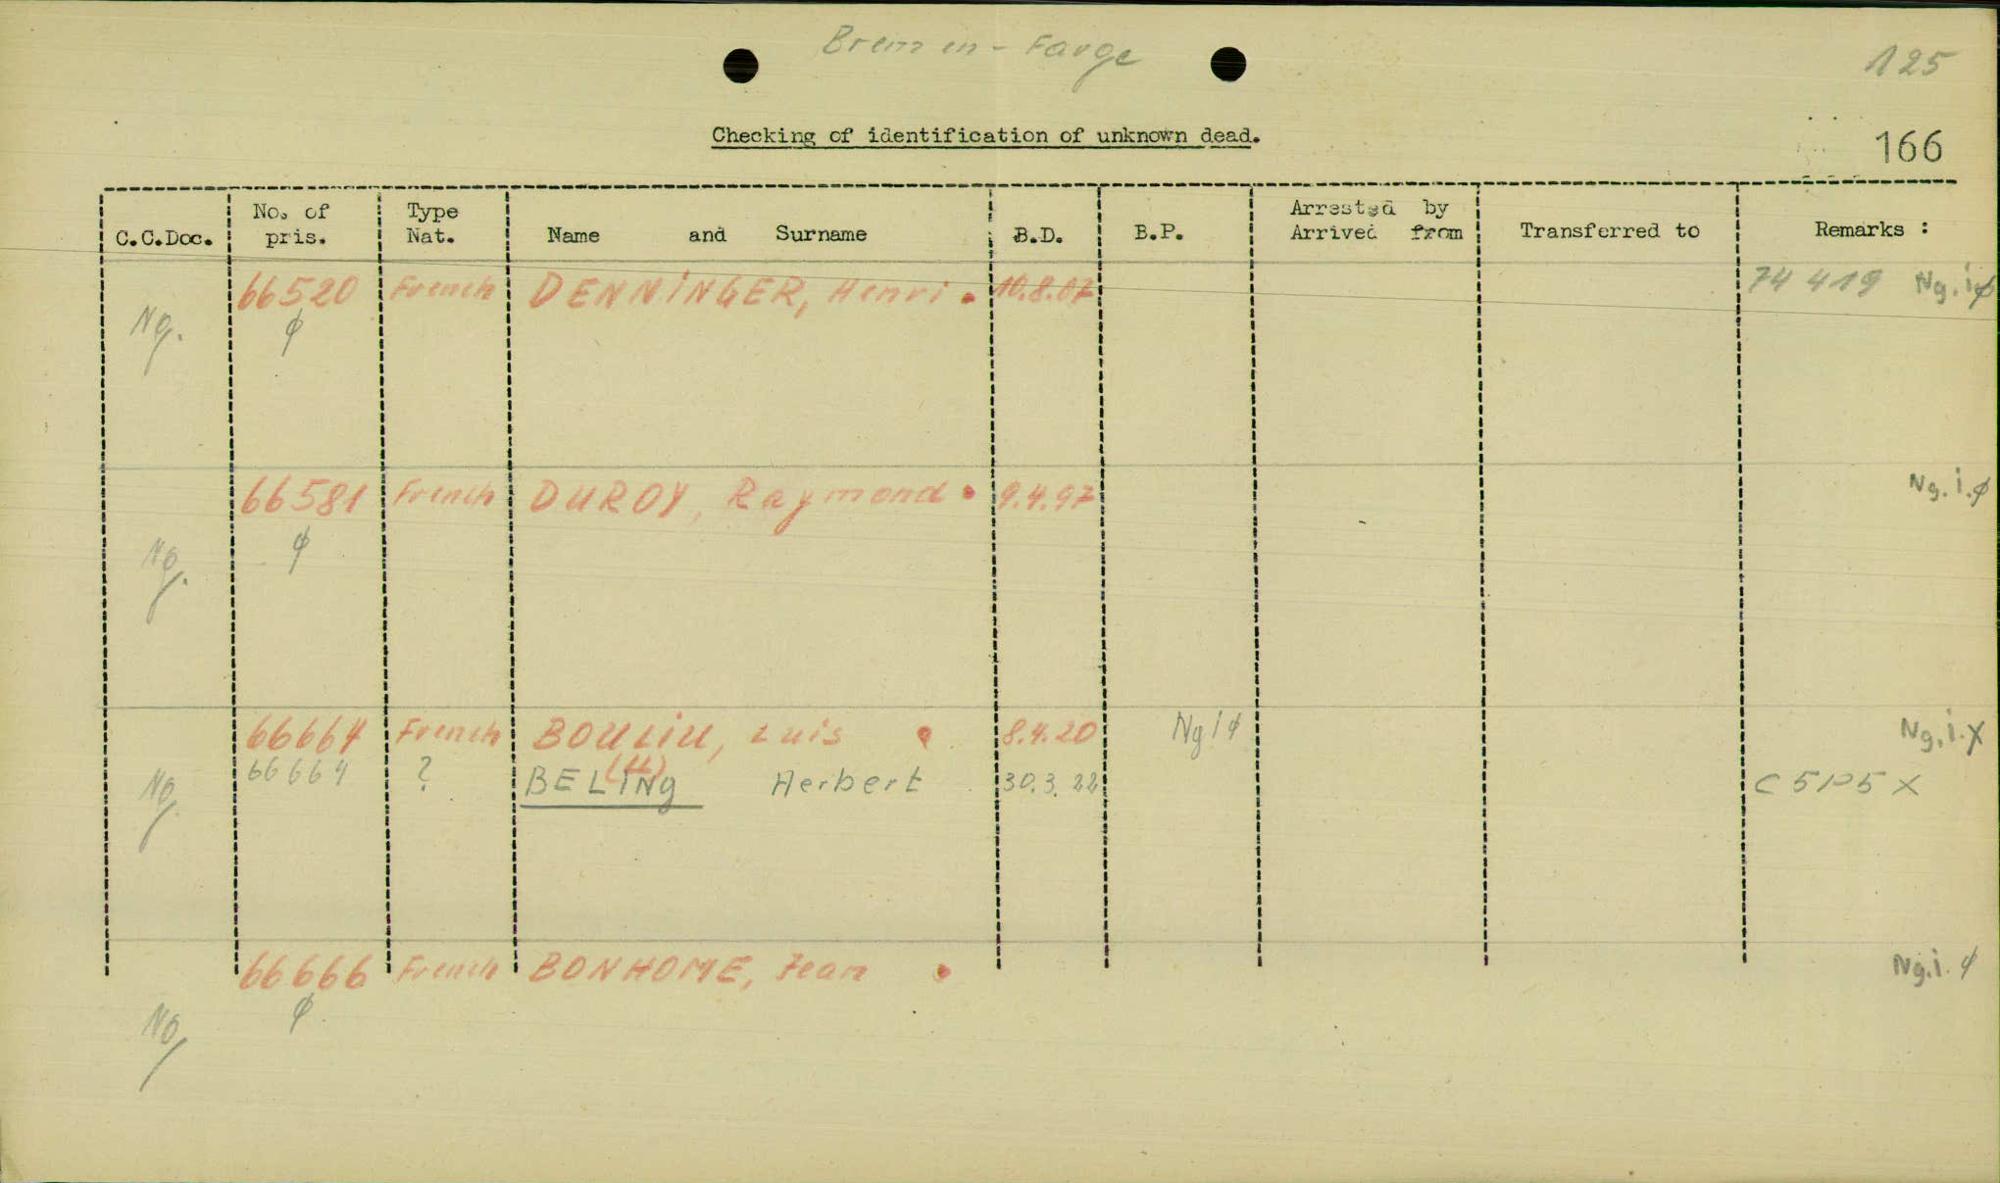 Bremen - Farge
125
Checking of identification of unknown dead.
166
C.C.Doc. No. of pris. Type Nat. Name and Surname B.D. B.P. Arrested by Arrived from Transferred to Remarks :
66520 French DENNiNGER, Henri . 10.8.07 74 419 Ng.i ϕ
Ng. ϕ
66581 French DUROY, Raymond . 9.4.97 Ng.i.ϕ
Ng. ϕ
66664 French BOULiU, Luis . 8.4.20 Ng i ϕ Ng.i.x
(H)
Ng 66664 ? BELINg Herbert 30.3.22 C 5 P 5 X
66666 French BONHOME, Jean . Ng.i. ϕ
Ng ϕ